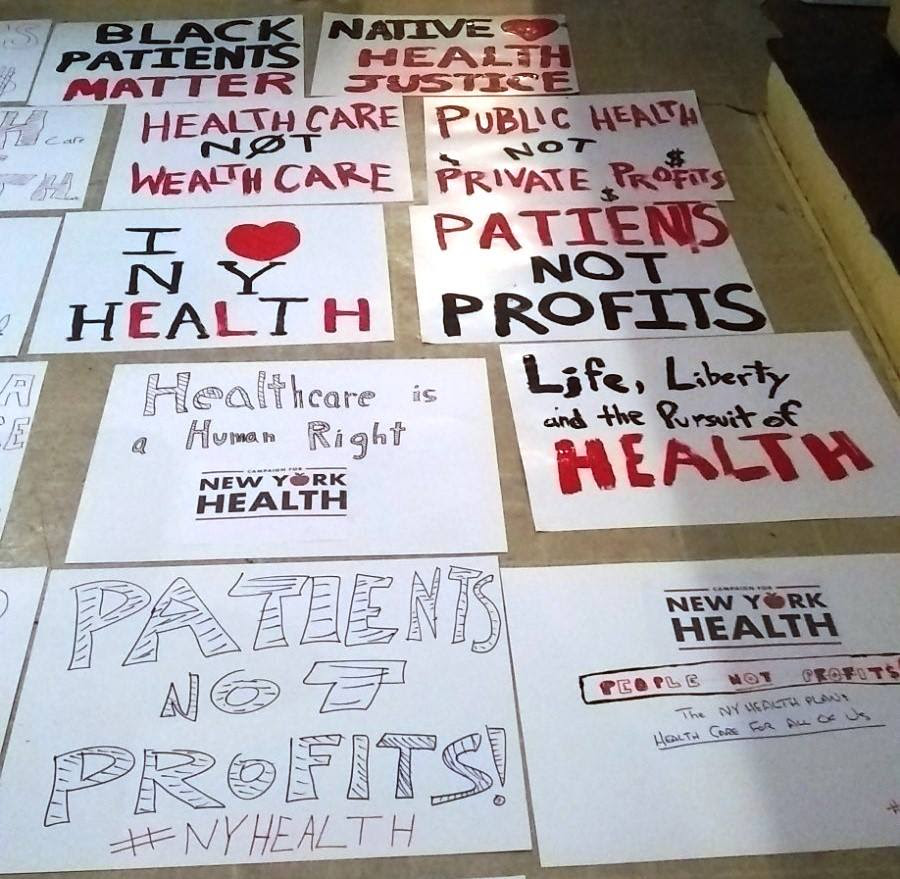 BLACK
PATIENTS
MATTER
NATIVE
HEALTH
JUSTICE
HEALTH CARE
NØT
WEALTH CARE
PUBLIC HEALTH
NOT
PRIVATE PROFITS
$
$
I ❤
NY
HEALTH
PATIENTS
NOT
PROFITS
Healthcare is
a Human Right
CAMPAIGN FOR
NEW YORK
HEALTH
Life, Liberty
and the Pursuit of
HEALTH
PATIENTS
NOT
PROFITS!
#NYHEALTH
CAMPAIGN FOR
NEW YORK
HEALTH
PEOPLE NOT PROFITS!
The NY HEALTH PLAN:
HEALTH CARE FOR ALL OF US
Care